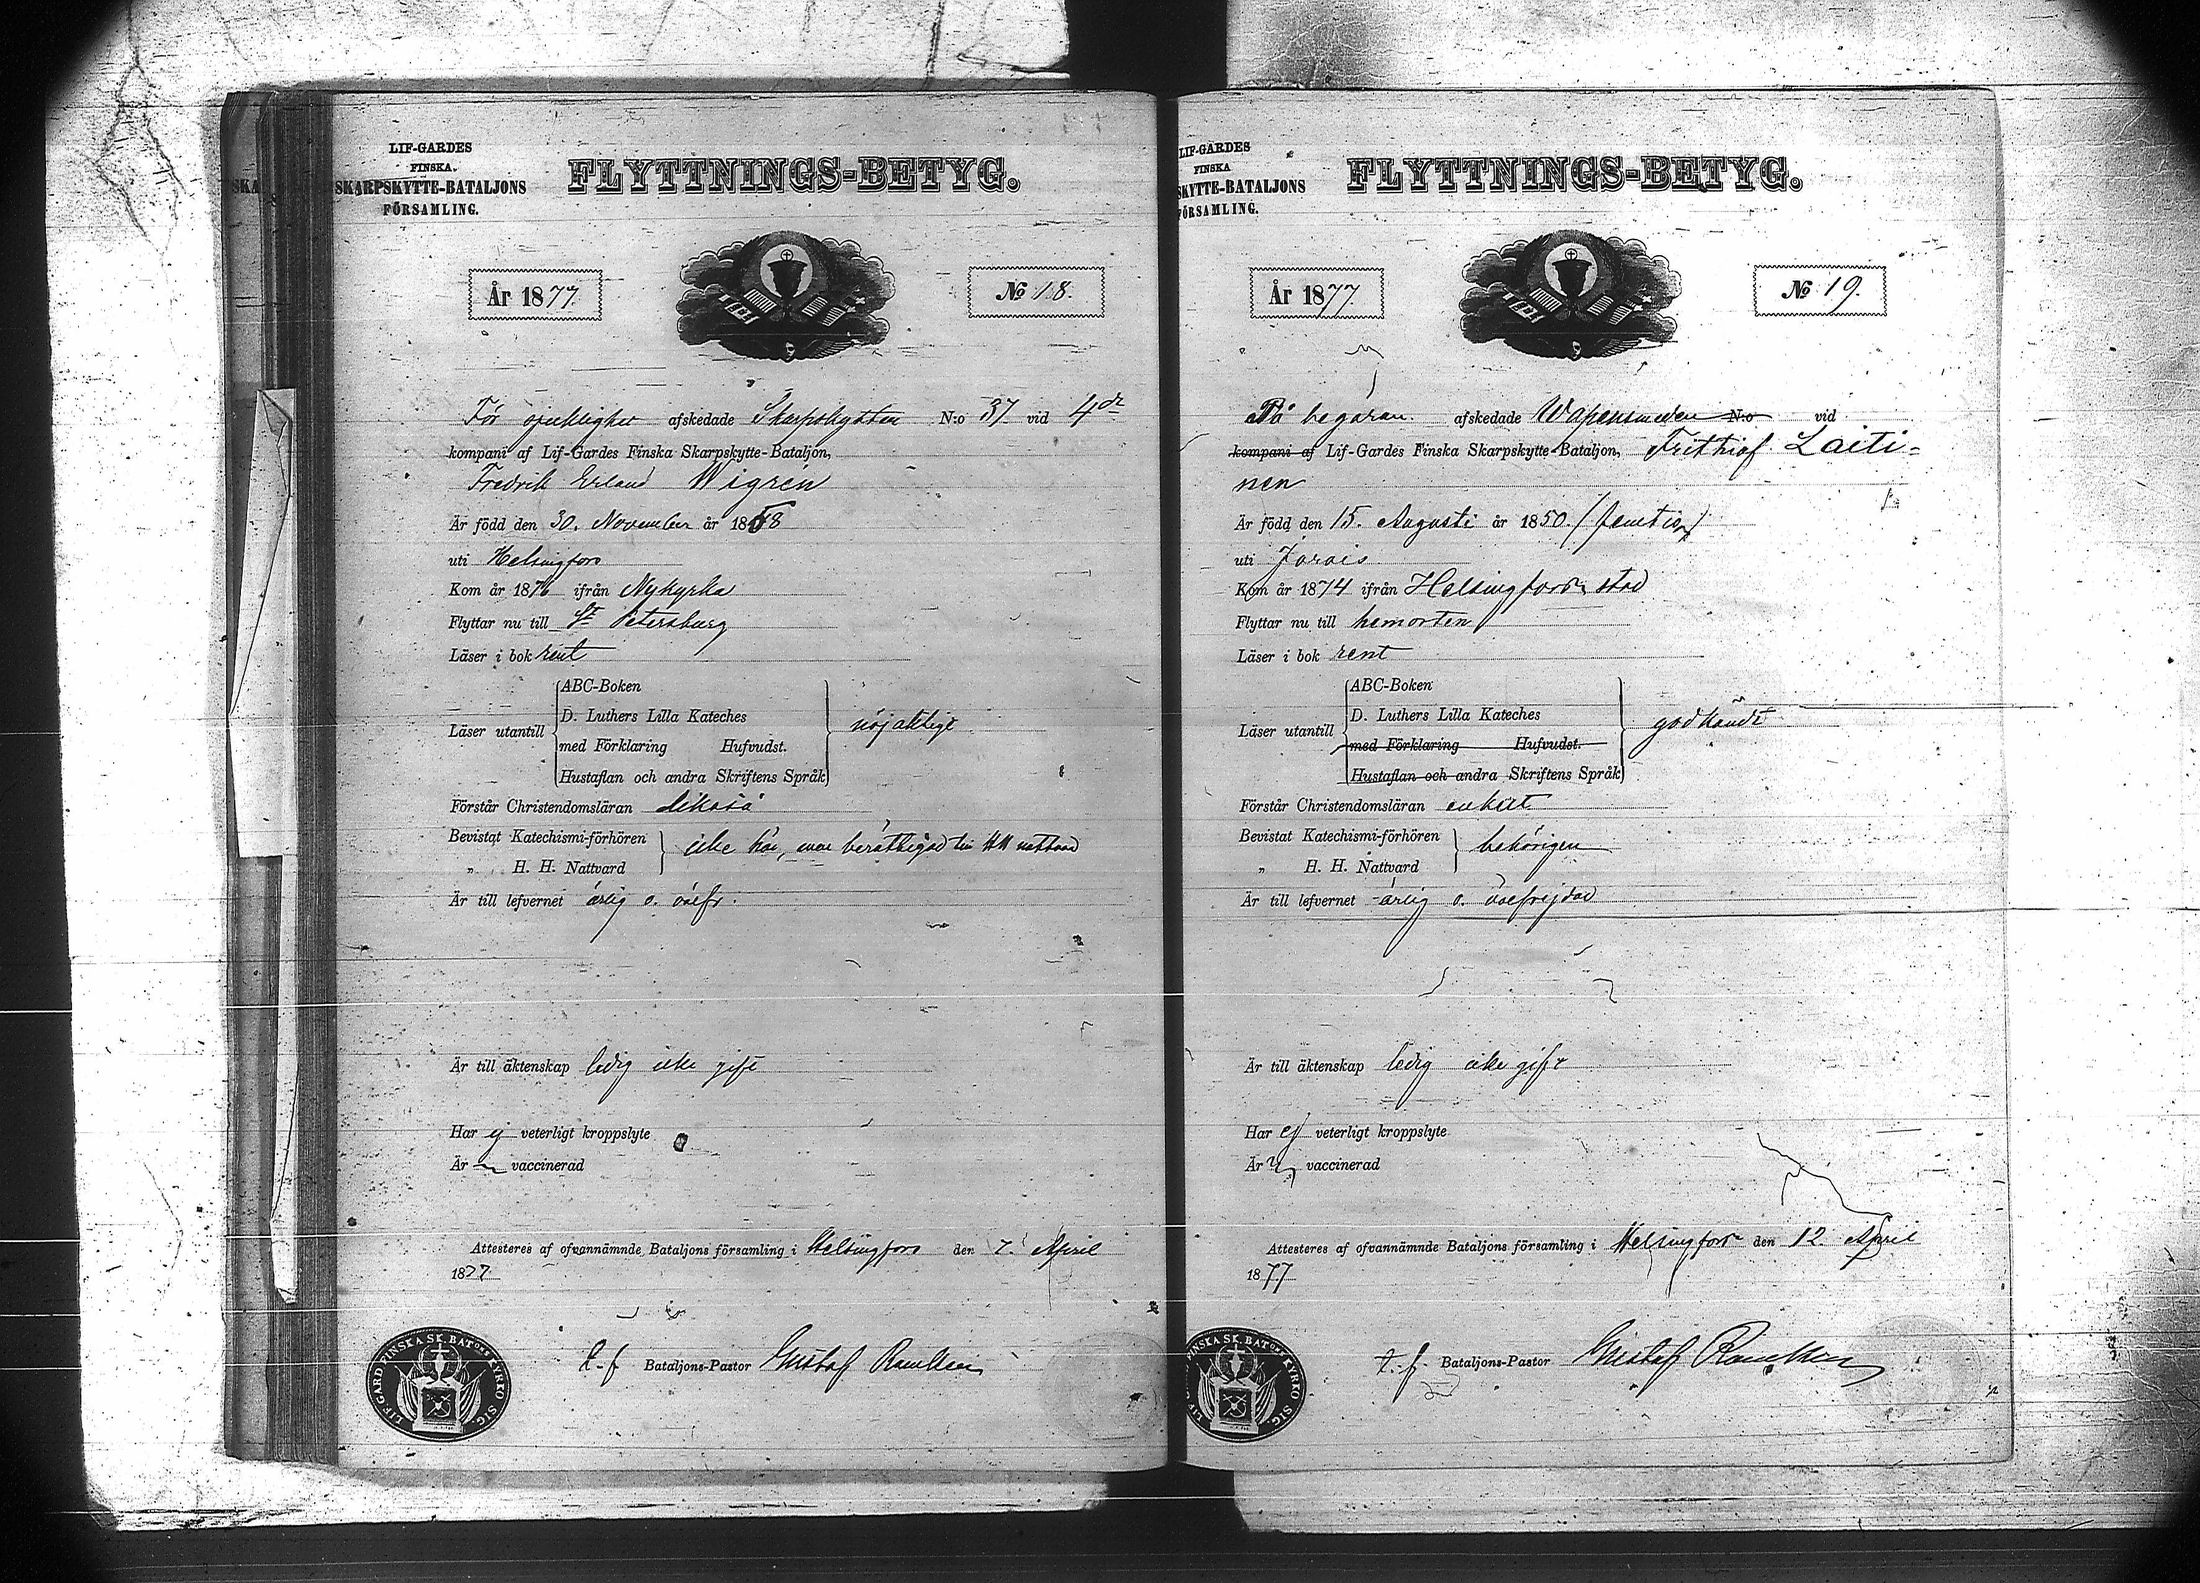 LIF-GARDES
FINSKA
SKARPSKYTTE-BATALJONS
FÖRSAMLING.
FLYTTNINGS-BETYG.
År 1877.
No 18.
För sjuklighet afskedade Skarpskytten N:o 37 vid 4de
kompani af Lif-Gardes Finska Skarpskytte-Bataljon,
Fredrik Erland Wigrén
Är född den 30. November år 1858
uti Helsingfors
Kom år 1876 ifrån Nykyrka
Flyttar nu till St Petersburg
Läser i bok rent
ABC-Boken
D. Luthers Lilla Kateches
Läser utantill
med Förklaring Hufvudst.
nöjaktigt
Hustaflan och andra Skriftens Språk
Förstår Christendomsläran likaså
Bevistat Katechismi-förhören
icke här, men berättigad till HH nattvard
„ H. H. Nattvard
Är till lefvernet ärlig o. oäefr.
Är till äktenskap ledig icke gift
Har ej veterligt kroppslyte
Är vaccinerad
Attesteras af ofvannämnde Bataljons församling i Helsingfors den 7. April
1877
t.f. Bataljons-Pastor Gustaf
LIF-GARD FINSKA SK. BATONS KYRKO SIG.
LIF-GARDES
FINSKA
SKYTTE-BATALJONS
FÖRSAMLING.
FLYTTNINGS-BETYG.
År 1877
No 19.
På begäran afskedade Wapensmeden N:o vid
kompani af Lif-Gardes Finska Skarpskytte-Bataljon, Frithiof Laiti-
nen
Är född den 15. Augusti år 1850. (femtio)
uti Jorois
Kom år 1874 ifrån Helsingfors stad
Flyttar nu till hemorten
Läser i bok rent
ABC-Boken
D. Luthers Lilla Kateches
Läser utantill
med Förklaring Hufvudst.
godkändt
Hustaflan och andra Skriftens Språk
Förstår Christendomsläran enkelt
Bevistat Katechismi-förhören
behörigen
„ H. H. Nattvard
Är till lefvernet ärlig o. oäefrejdad
Är till äktenskap ledig icke gift
Har ej veterligt kroppslyte
Är vaccinerad
Attesteras af ofvannämnde Bataljons församling i Helsingfors den 12. April
1877
t.f. Bataljons-Pastor Gustaf
FINSKA SK. BATONS KYRKO SIG.